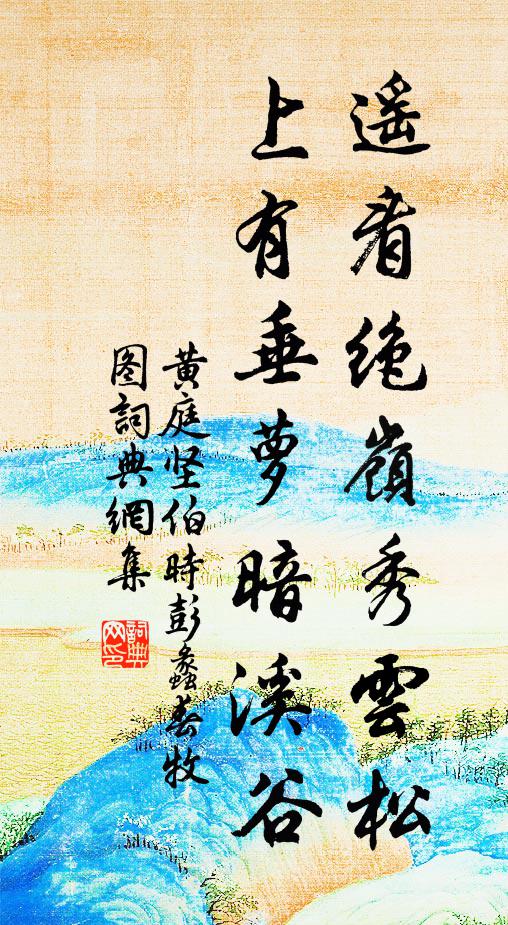 遥看绝嶺秀雲松
上有垂萝暗溪谷
黄庭坚伯時彭蠡春牧
图詞典網集
詞典网印